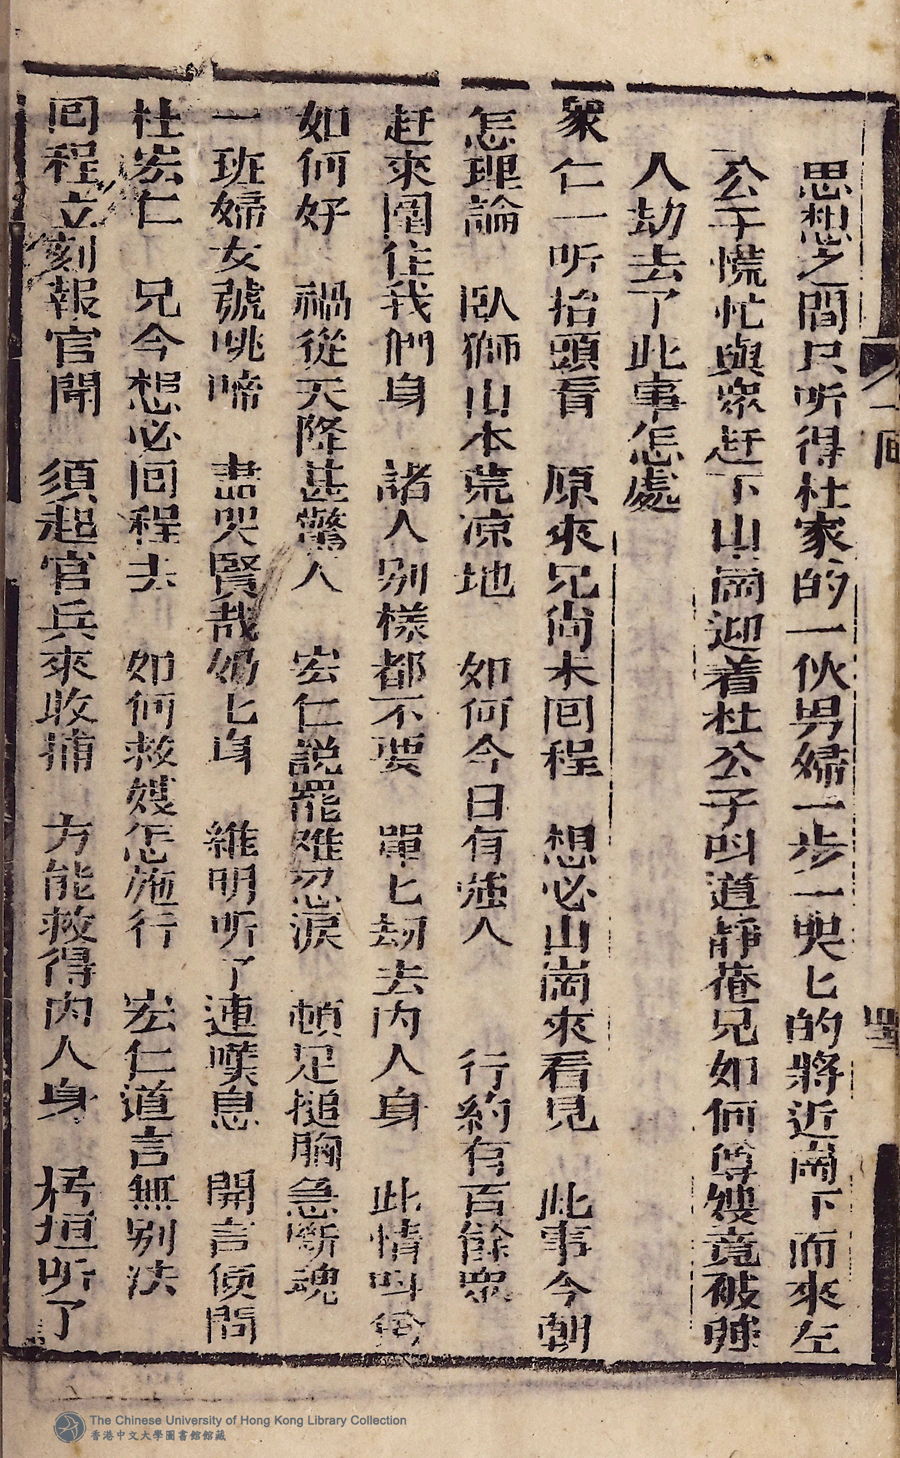 思想之間只听得杜家的一伙男婦一步一哭匕的將近崗下而來左
公子慌忙與衆赶下山崗迎着杜公子叫道靜菴兄如何尊嫂竟被賍
人劫去了此事怎處
衆仁一听抬頭看　原來兄尚未囘程　想必山崗來看見　此事今朝
怎理論　臥獅山本荒凉地　如何今日有強人　行約有百餘衆
赶來圍住我們身　諸人别樣都不要　單匕刼去内人身　此情叫
如何好　禍從天降甚驚人　宏仁説罷难忍淚　頓足搥胸急斷魂
一班婦女號咷啼　盡哭賢哉奶匕身　維明听了連嘆息　開言便問
杜宏仁　兄今想必囘程去　如何救嫂怎施行　宏仁道言無别法
囘程立刻報官聞　須起官兵來收捕　方能救得内人身　桓听了
一囘
The Chinese University of Hong Kong Library Collection
香港中文大學圖書館館藏